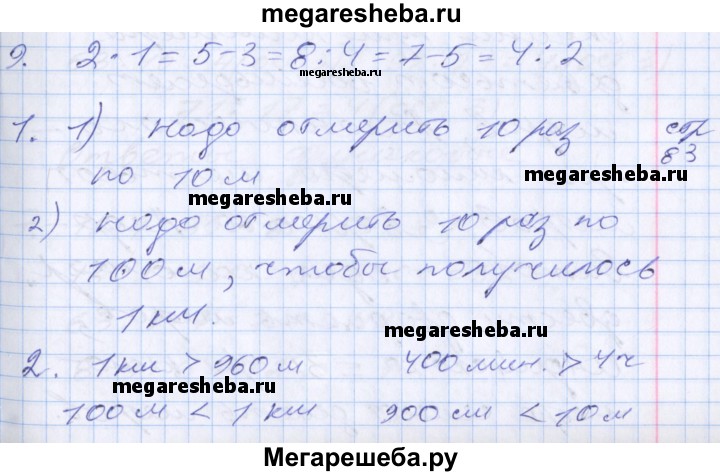 megaresheba.ru
9. 2·1=5-3=8:4=7-5=4:2
megaresheba.ru
1. 1) надо отмерить 10 раз стр
по 10 м 83
megaresheba.ru megaresheba.ru
2) надо отмерить 10 раз по
100 м, чтобы получилось
1 км.
megaresheba.ru
2. 1 км > 960 м 400 мин. > 4 ч
megaresheba.ru
100 м < 1 км 900 см < 10 м
Мегарешеба.ру